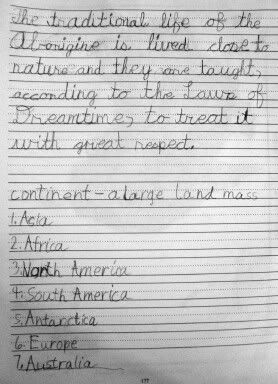 The traditional life of the
Aborigine is lived close to
nature and they are taught,
according to the Laws of
Dreamtime, to treat it
with great respect.
continent - a large land mass
1. Asia
2. Africa
3. North America
4. South America
5. Antarctica
6. Europe
7. Australia
177